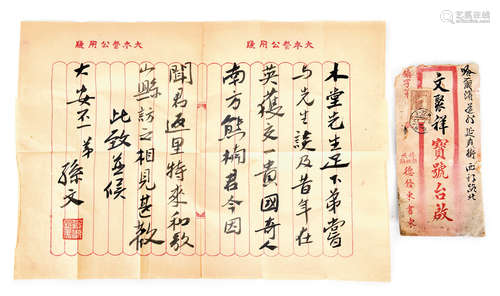 大本營公用牋
大本營公用牋
木堂先生足下弟嘗
与先生談及昔年在
英獲交一貴國奇人
南方熊楠君今因
聞君返里特來和歌
山縣訪之相見甚歡
此致並候
大安不一 弟
孫文
哈爾濱道外
文聚祥寶號台啟
德發東書柬